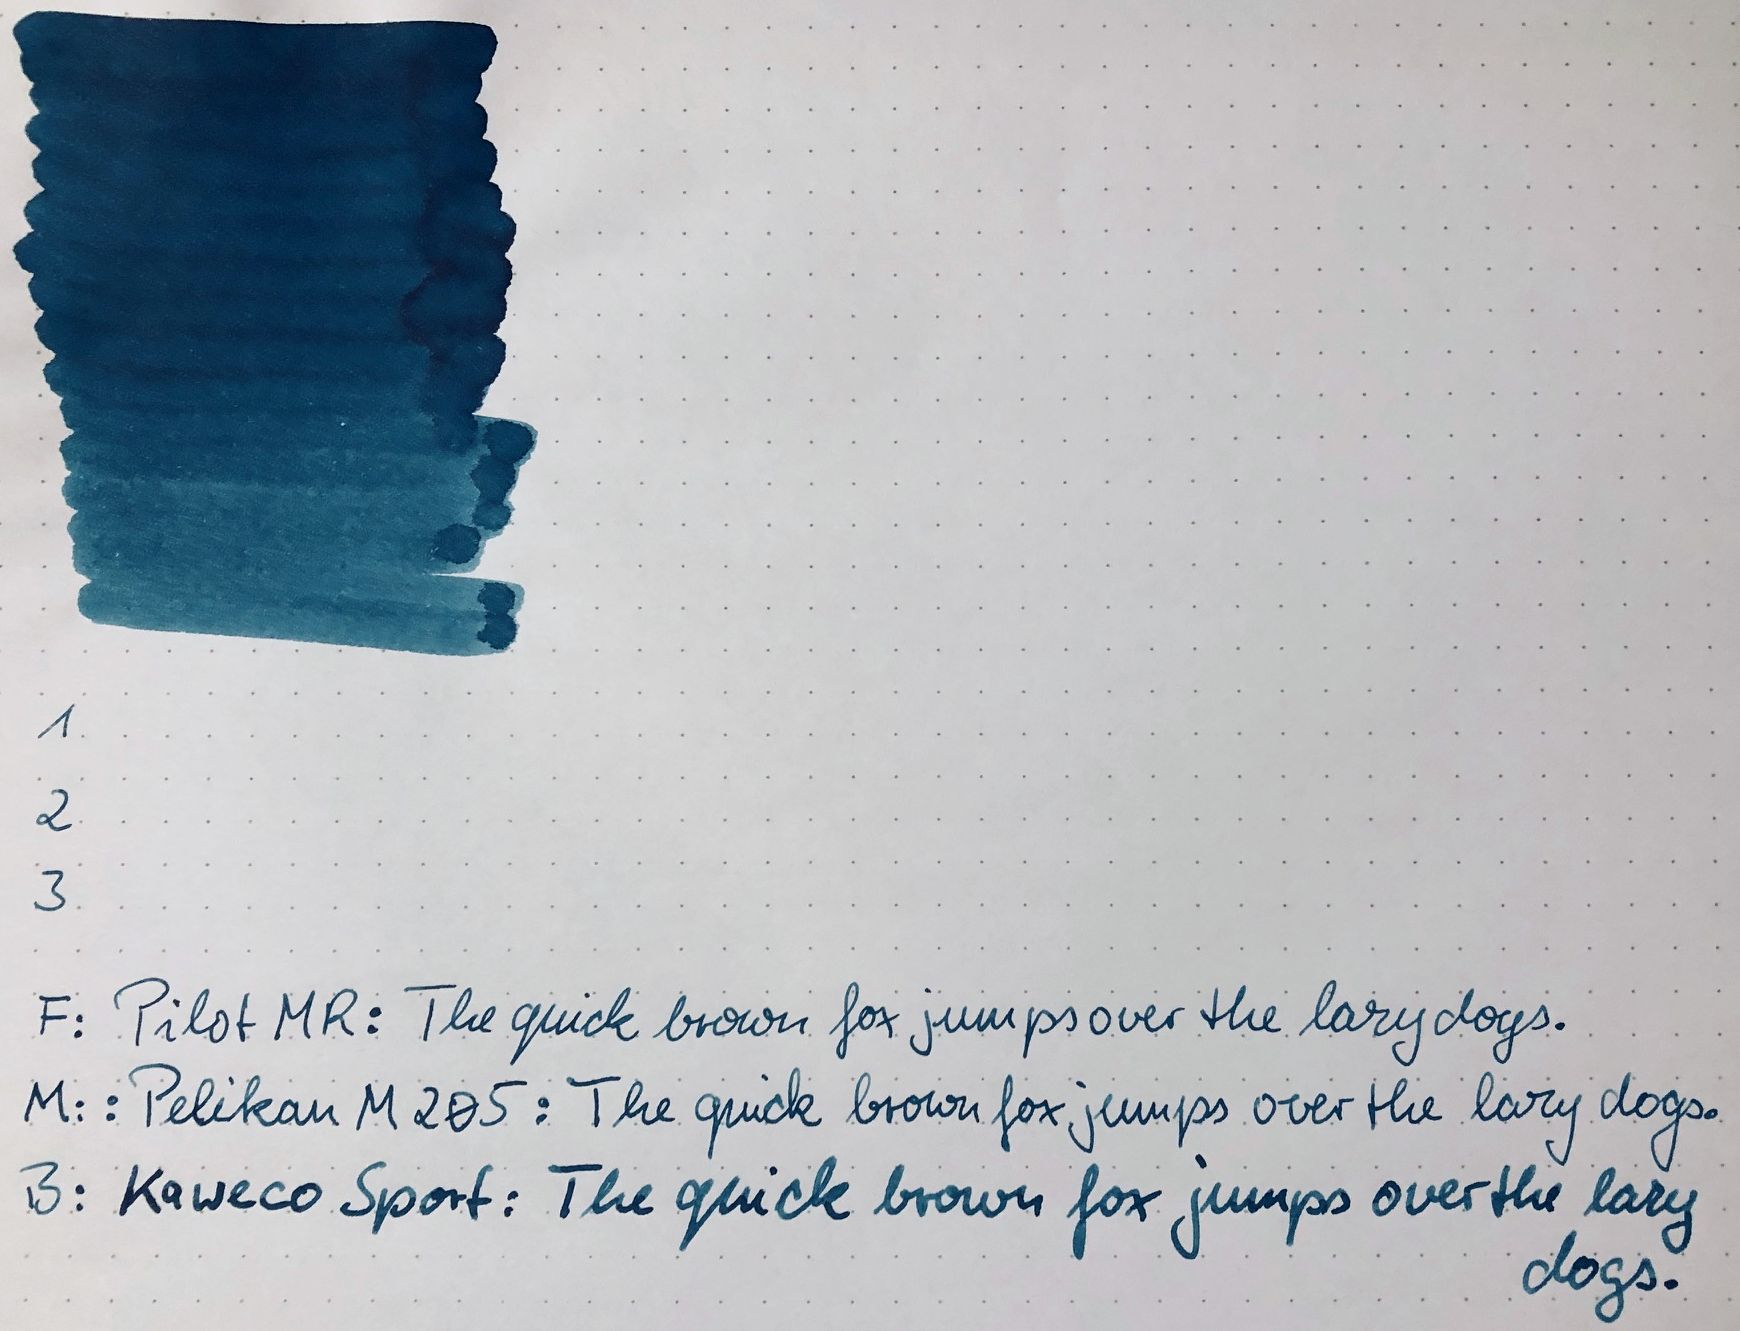 1
2
3
F: Pilot MR: The quick brown fox jumps over the lazy dogs.
M: : Pelikan M205: The quick brown fox jumps over the lazy dogs.
B: Kaweco Sport: The quick brown fox jumps over the lazy
dogs.